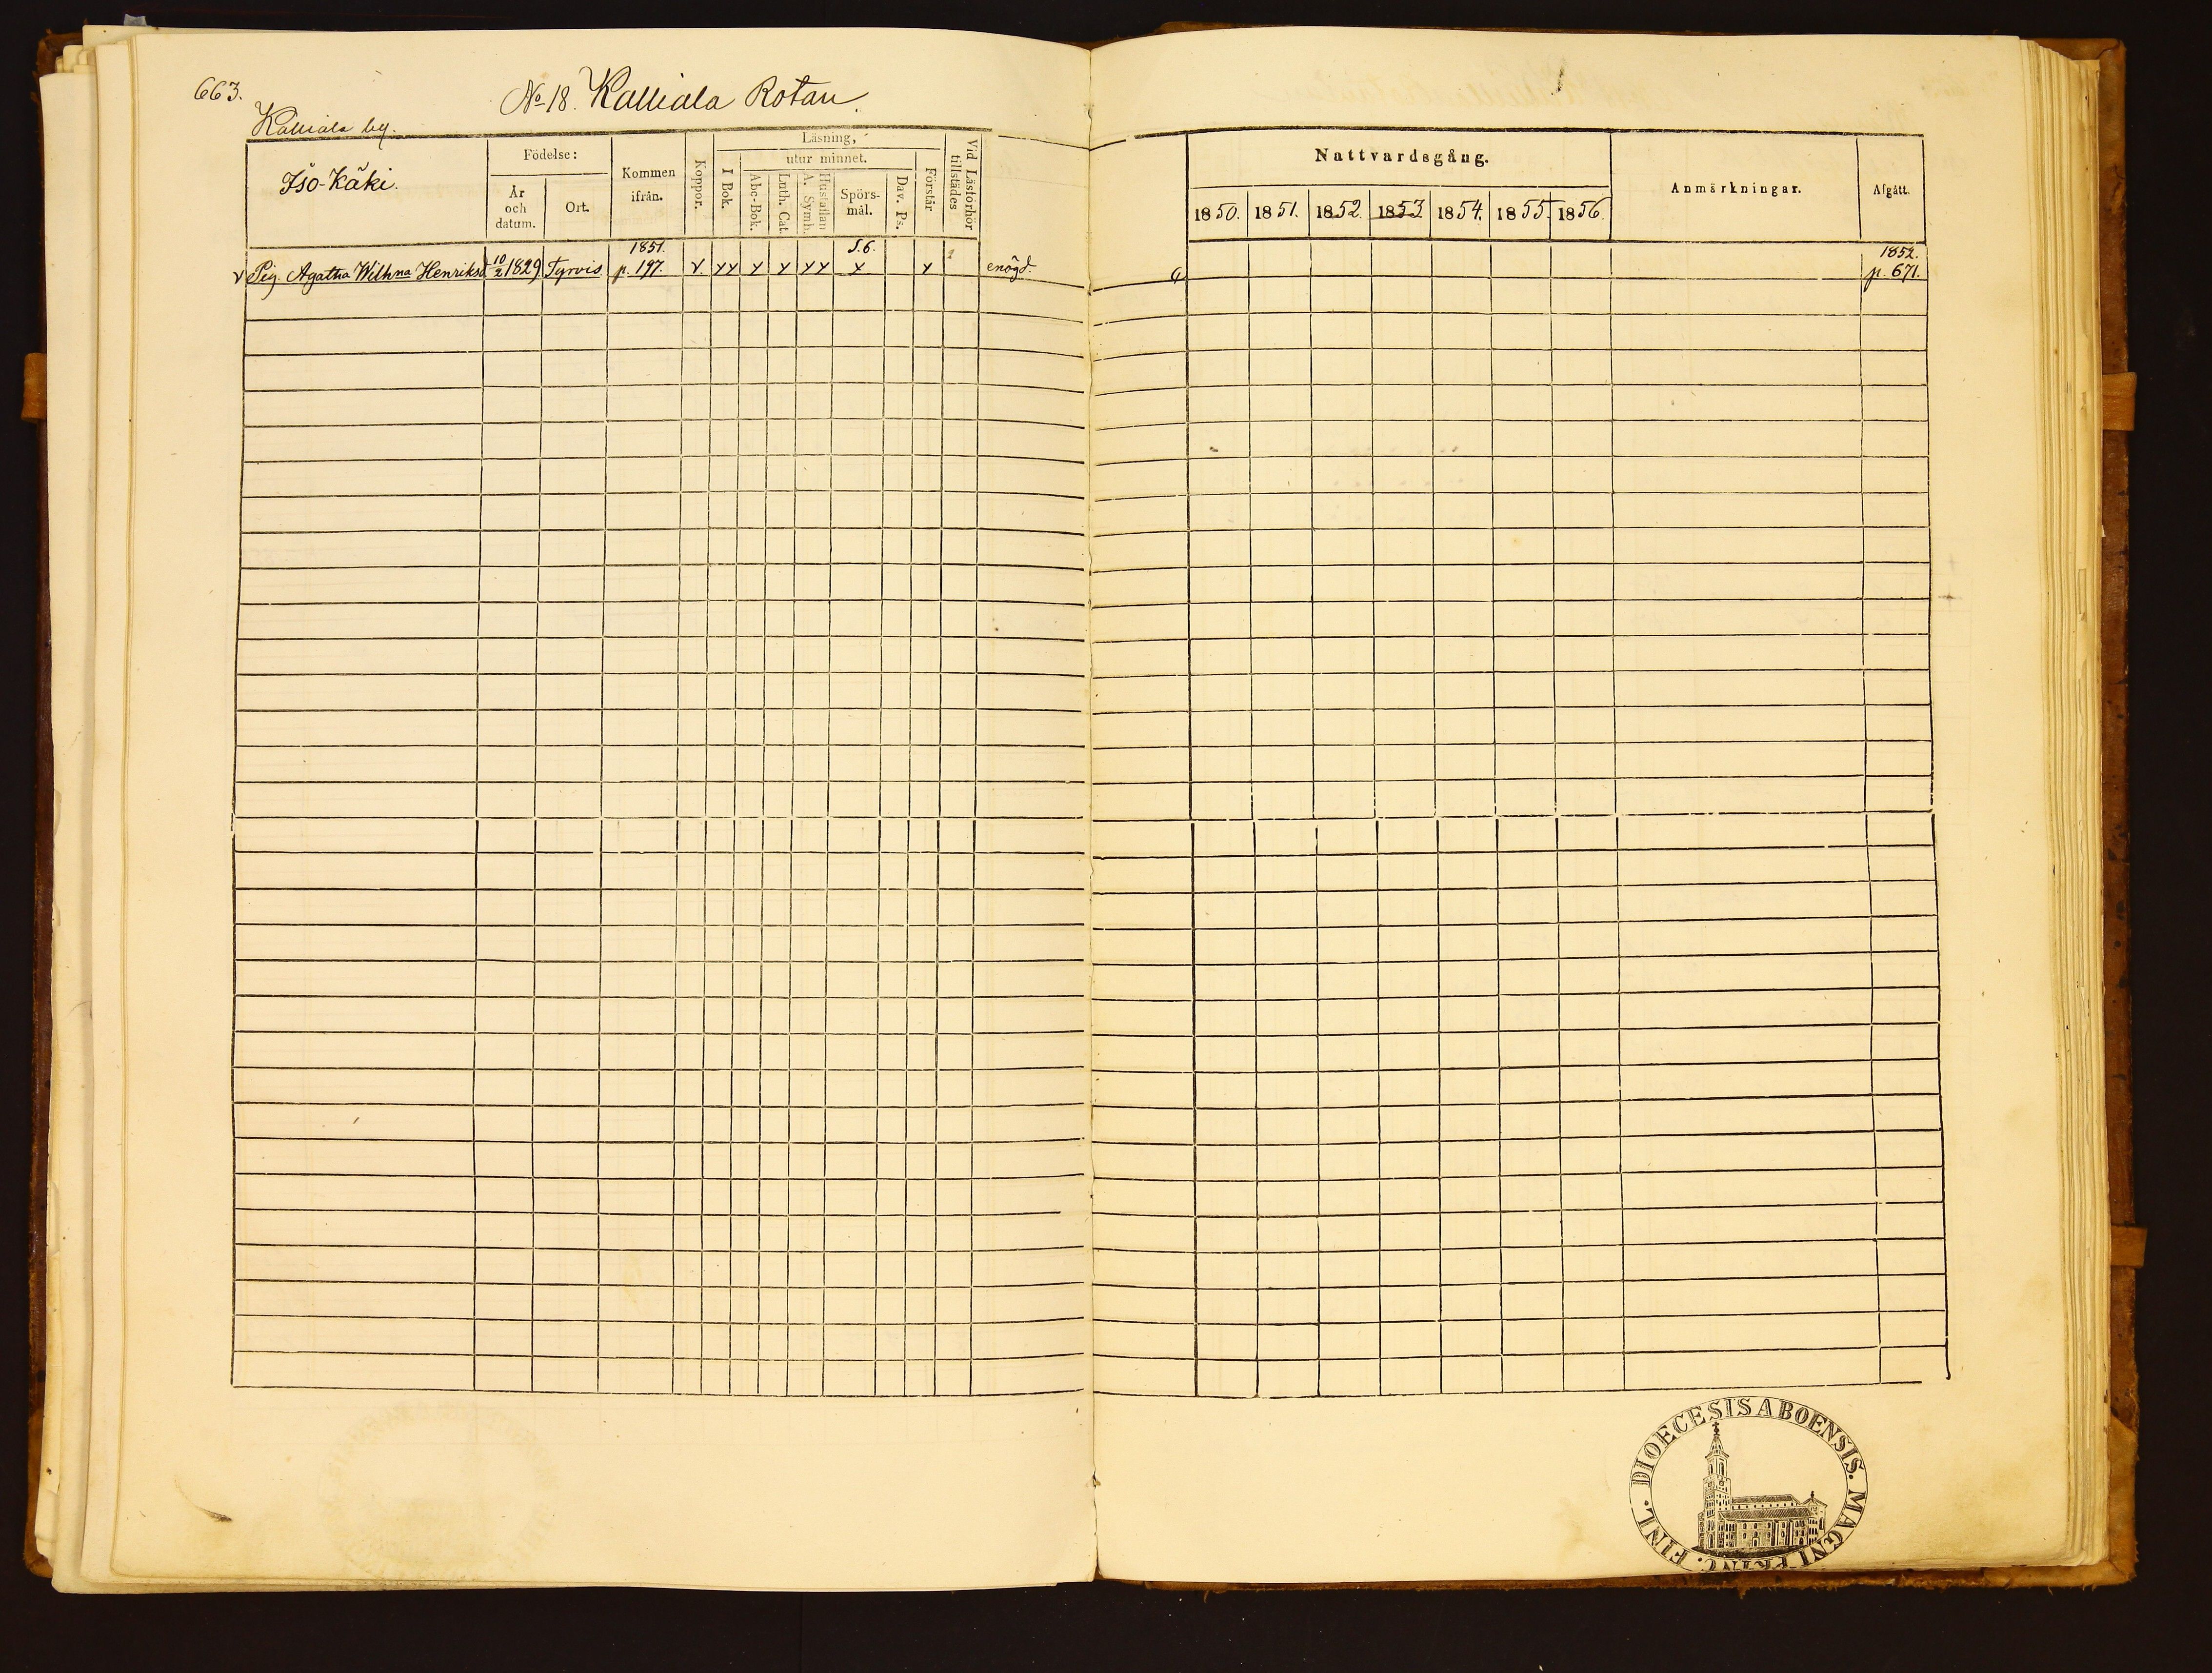 663.
No 18. Kalliala Rotan.
Kalliala by.
Iso-Käki.
Födelse:
År och datum.
Ort.
Kommen ifrån.
Koppor.
Läsning,
I Bok.
utur minnet.
Abc-Bok.
Luth. Cat.
Hustaflan A. Symb.
Spörs-mål.
Dav. Ps.
Förstår
Vid Läsförhör tillstädes
Nattvardsgång.
1850. 1851. 1852. 1853 1854. 1855. 1856.
Anmärkningar.
Afgått.
1851. S.6. 1852.
v Pig. Agatha Wilhna Henriksd 10/2 1829 Tyrvis p. 197. v. xx x x xx x x enögd. p. 671.
DIOECESIS ABOENSIS. MAGNI PRINC. FINL.